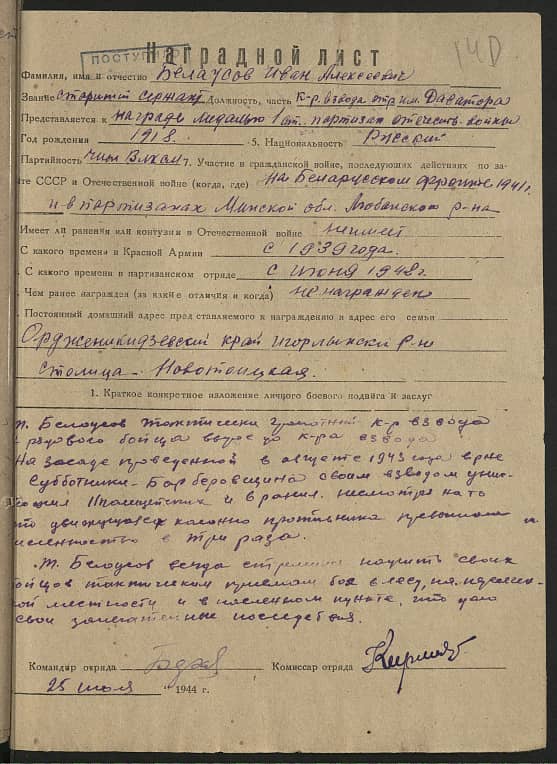 140
ПОСТУПИЛО
Наградной лист
Фамилия, имя и отчество Белаусов Иван Алексеевич
Звание старший сержант Должность, часть к-р взвода отр им. Даватора
Представляется к награде медалью 1 ст. партизан отечеств. войны
Год рождения 1918. 5. Национальность Русский
Партийность член Влксм 7. Участие в гражданской войне, последующих действиях по за-
ите СССР и Отечественной войне (когда, где) на Беларусском фронте 1941г.
и в партизанах Минской обл. Любанского р-на
Имеет ли ранения или контузии в Отечественной войне не имеет
С какого времени в Красной Армии с 1939 года.
. С какого времени в партизанском отряде с июня 1942г.
. Чем ранее награжден (за какие отличия и когда) не награжден
. Постоянный домашний адрес представляемого к награждению и адрес его семьи
Орджоникидзевский край р-не
Новотроицкая.
1. Краткое конкретное изложение личного боевого подвига и заслуг
т. Белоусов тактически грамотный к-р взвода
с рядового бойца вырос до к-ра взвода
На засаде проведенной в августе 1943 года в р-не
Субботники - Барберовщина своим взводом унич-
и ранил. несмотря на то
что движущаяся колонна противника превышала
численностью в три раза.
. Т. Белоусов всегда стремился научить своих
бойцов тактическим приемам боя в лесу, на
местности и в населенном пункте, что дало
свои замечательные последствия.
Командир отряда Комиссар отряда
25 июля 1944 г.